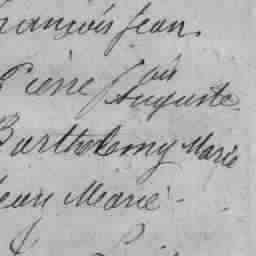 rançois Jean
Pierre Jais
Auguste
Barthelemy Marie
Jean Marie